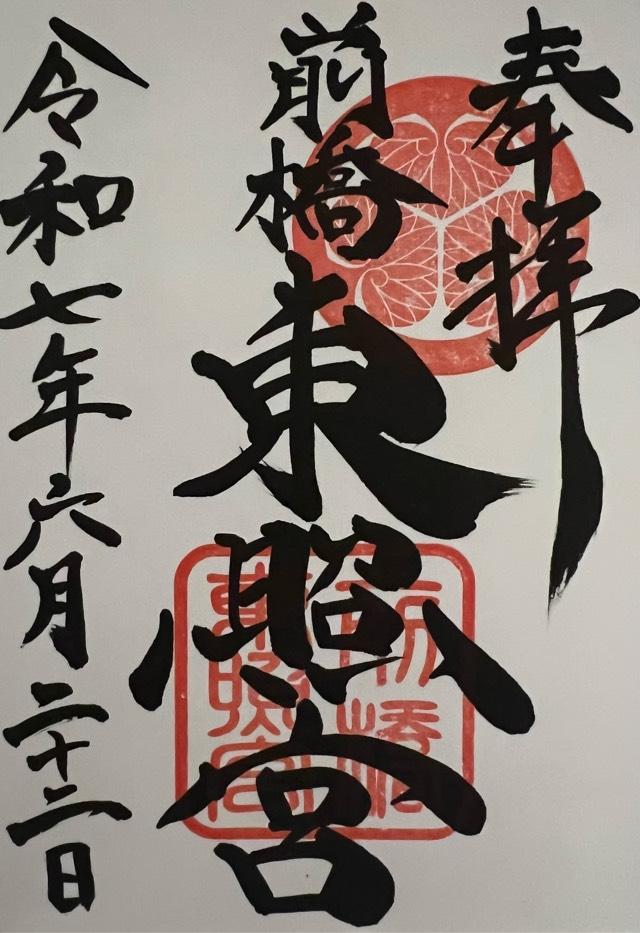 奉拝
前橋東照宮
令和七年六月二十二日
前橋
東照宮